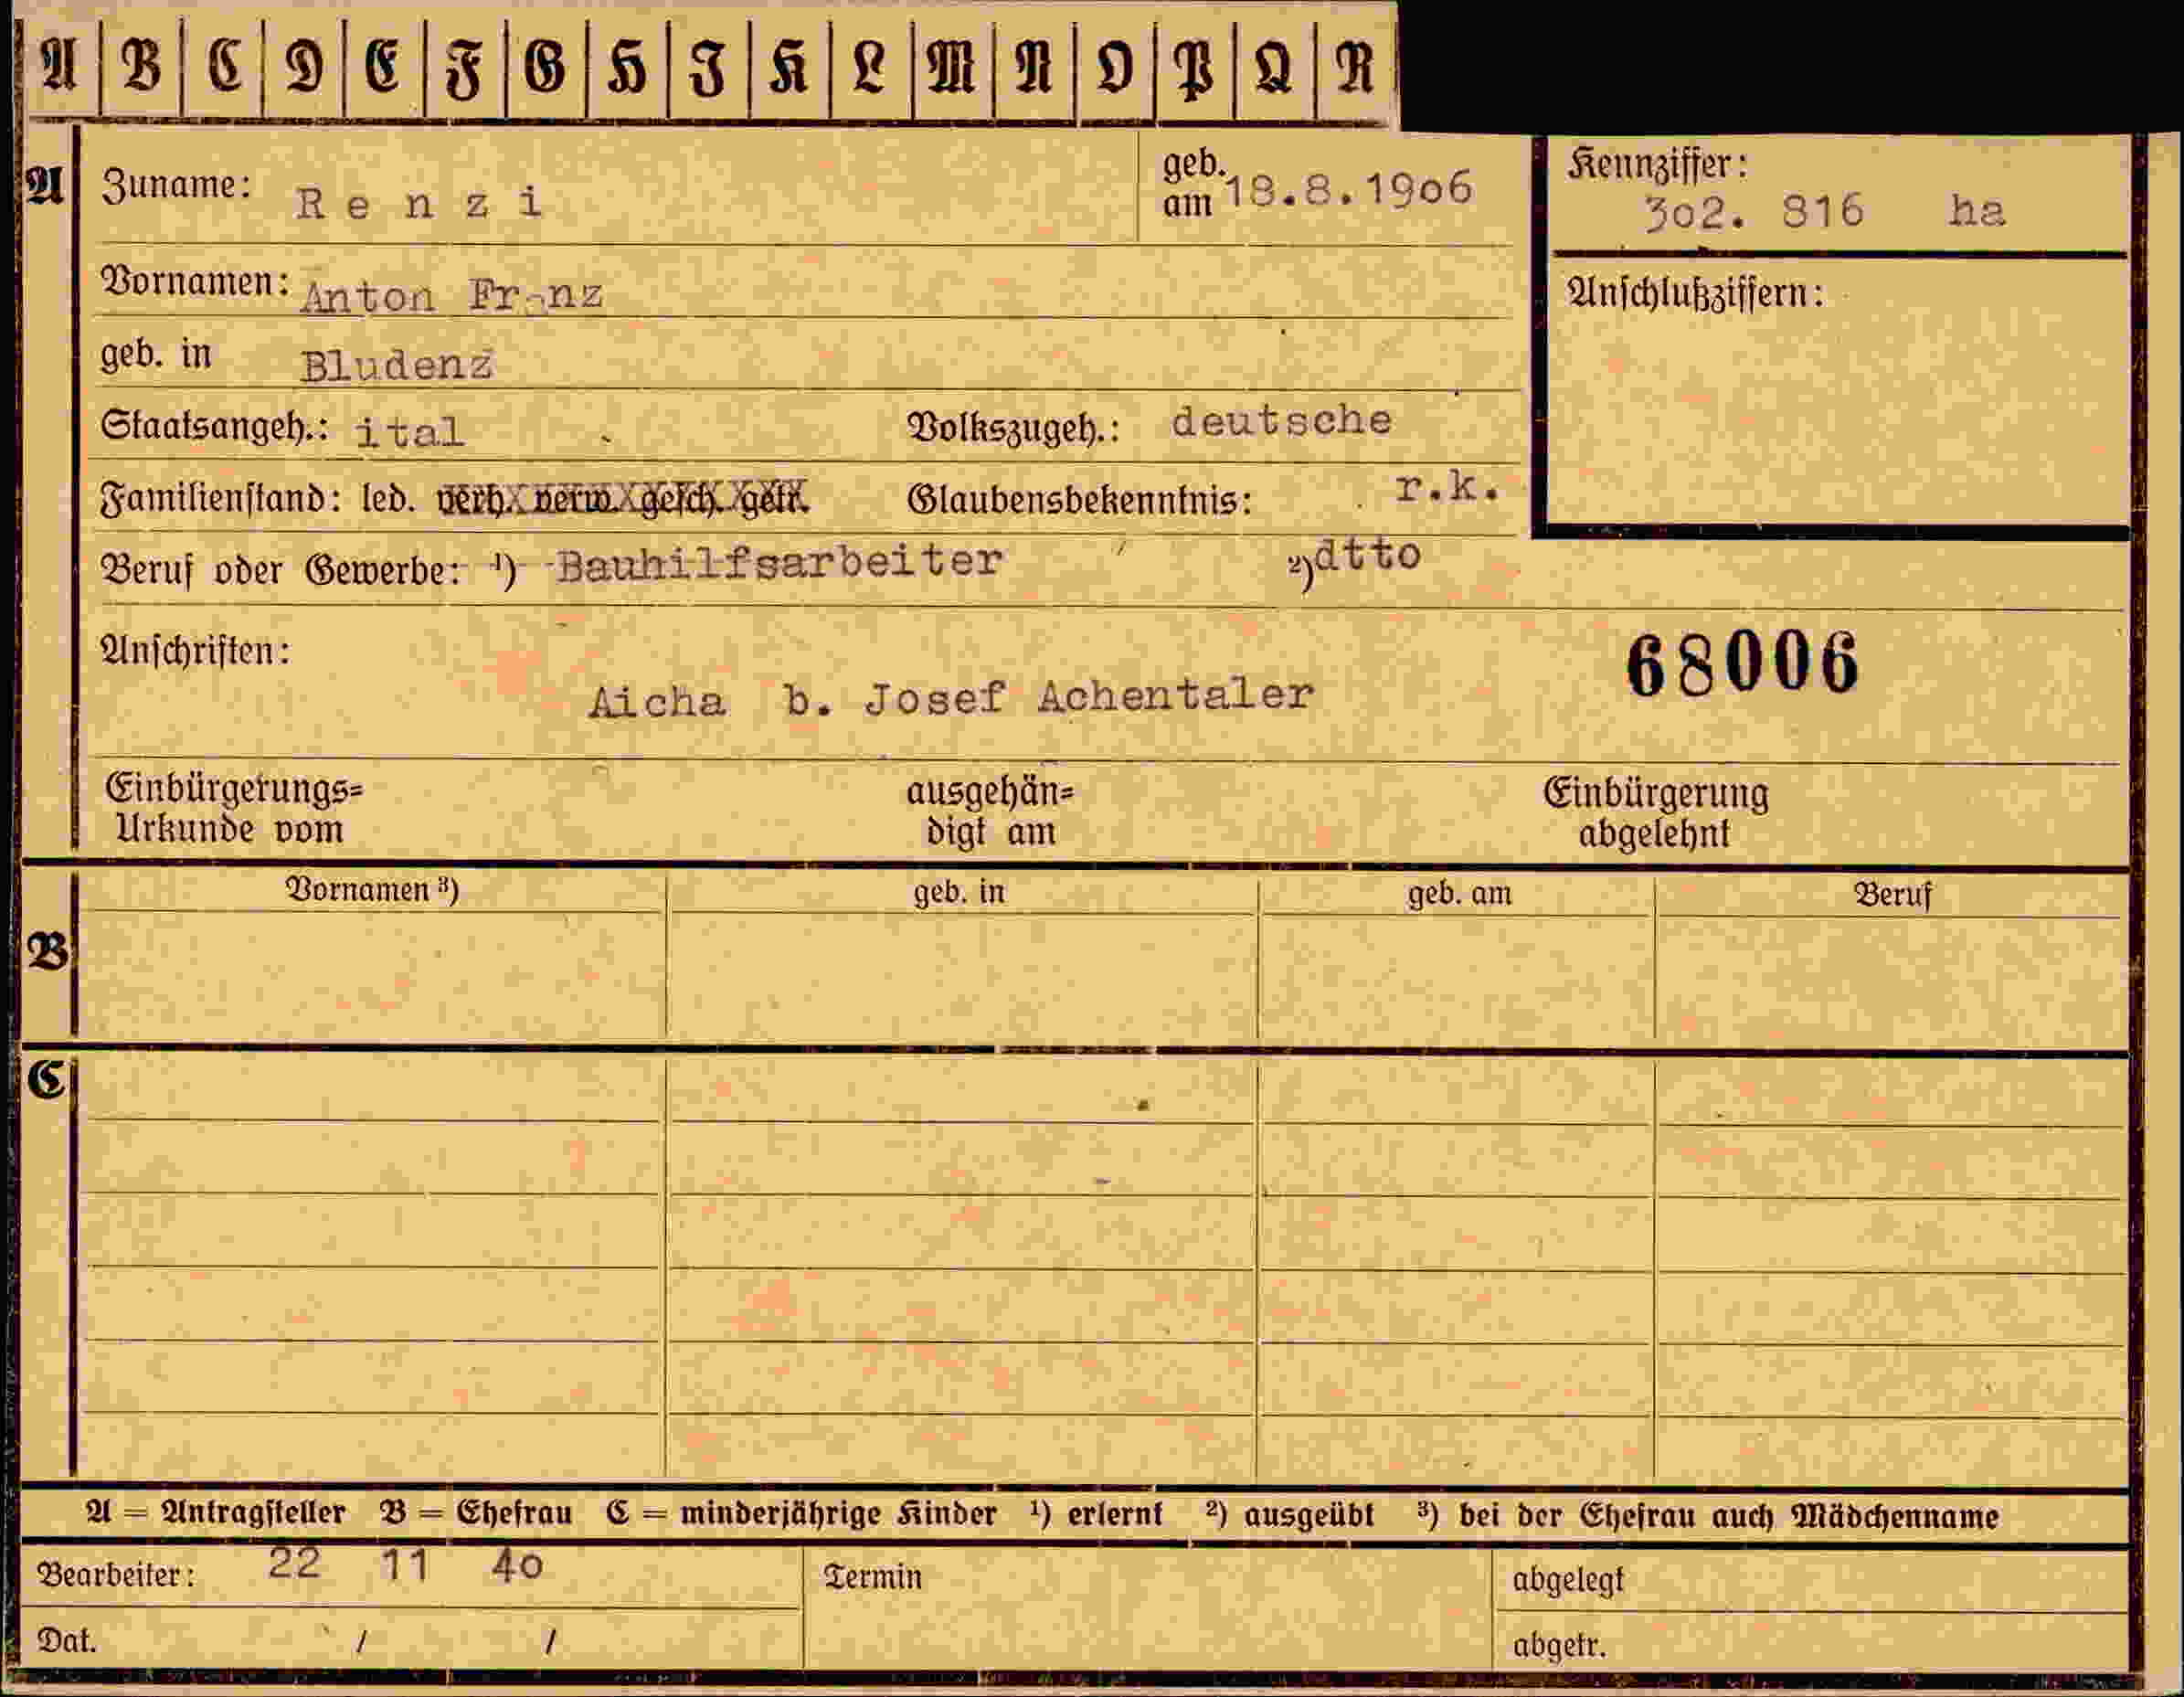 A B C D E F G H I K L M N O P Q R
A Zuname: Renzi geb. am 18.8.1906 Kennziffer: 302. 816 ha
Vornamen: Anton Fr nz Anschlußziffern:
geb. in Bludenz
Staatsangeh.: ital Volkszugeh.: deutsche
Familienstand: led. verh. verw. gesch. getr. Glaubensbekenntnis: r.k.
Beruf oder Gewerbe: ¹) Bauhilfsarbeiter ²) dtto
Anschriften: 68006
Aicha b. Josef Achentaler
Einbürgerungs= ausgehän= Einbürgerung
Urkunde vom digt am abgelehnt
Vornamen ³) geb. in geb. am Beruf
B
C
A = Antragsteller B = Ehefrau C = minderjährige Kinder ¹) erlernt ²) ausgeübt ³) bei der Ehefrau auch Mädchenname
Bearbeiter: 22 11 40 Termin abgelegt
Dat. / / abgetr.